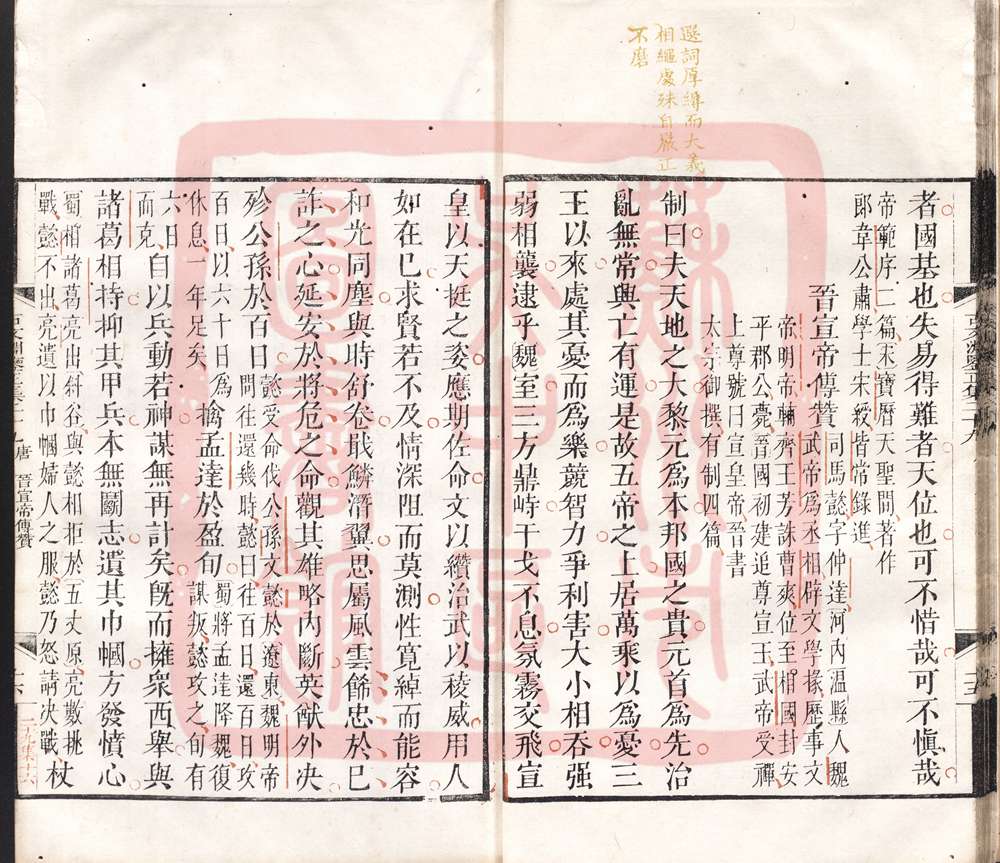 選詞厚縟而大義
相繩處殊自嚴正
不磨
者國基也失易得難者天位也可不惜哉可不愼哉
帝範序二篇宋寶曆天聖間著作
郎韋公肅學士宋綬皆常錄進
晉宣帝傳贊
司馬懿字仲達河內溫縣人魏
武帝爲丞相辟文學掾歷事文
帝明帝輔齊王芳誅曹爽位至相國封安
平郡公薨晉國初建追尊宣王武帝受禪
上尊號曰宣皇帝晉書
太宗御撰有制四篇
制曰夫天地之大黎元爲本邦國之貴元首爲先治
亂無常興亡有運是故五帝之上居萬乘以爲憂三
王以來處其憂而爲樂競智力爭利害大小相吞强
弱相襲逮乎魏室三方鼎峙干戈不息氛霧交飛宣
皇以天挺之姿應期佐命文以纘治武以稜威用人
如在已求賢若不及情深阻而莫測性寬綽而能容
和光同塵與時舒卷戢鱗潛翼思屬風雲飾忠於已
詐之心延安於將危之命觀其雄略內斷英猷外决
殄公孫於百日
懿受命伐公孫文懿於遼東魏明帝
問往還幾時懿曰往百日還百日攻
百日以六十日爲
休息一年足矣
擒孟達於盈旬
蜀將孟達降魏復
謀叛懿攻之旬有
六日
而克
自以兵動若神謀無再計矣旣而擁衆西舉與
諸葛相持抑其甲兵本無鬭志遺其巾幗方發憤心
蜀相諸葛亮出斜谷與懿相拒於五丈原亮數挑
戰懿不出亮遺以巾幗婦人之服懿乃怒請决戰
杖
唐 晉宣帝傳贊